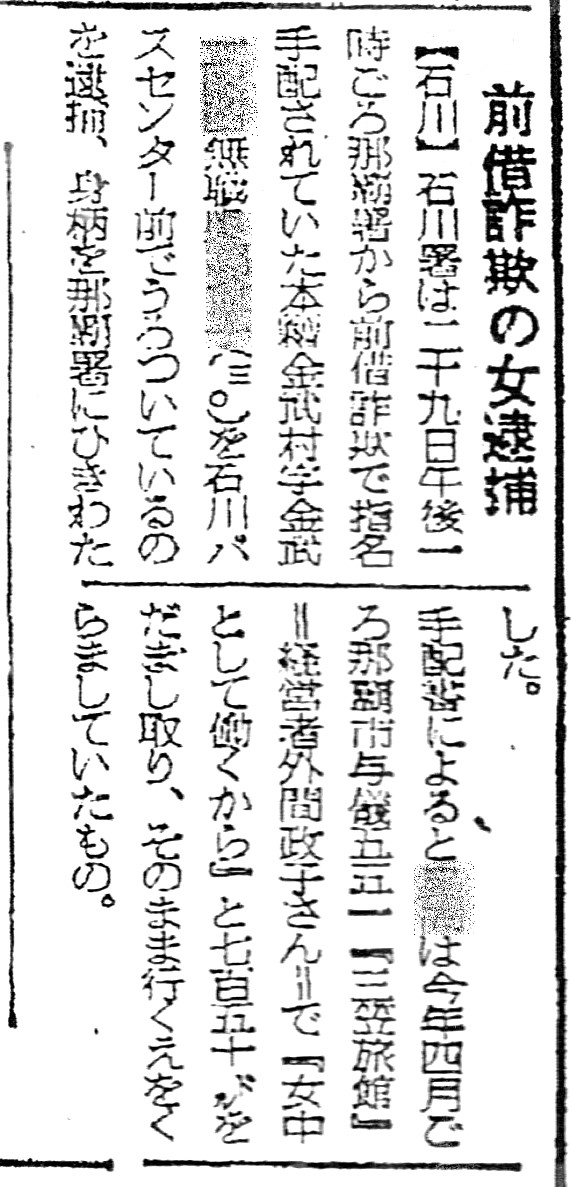 前借詐欺の女逮捕
【石川】石川署は二十九日午後一
時ごろ那覇署から前借詐欺で指名
手配されていた本籍金武村字金武
無職 (三〇)を石川バ
スセンター前でうろついているの
を逮捕、身柄を那覇署にひきわた
した。
手配書によると は今年四月ご
ろ那覇市与儀五五一『三笠旅館』
=経営者外間政子さん=で『女中
として働くから』と七百五十㌦を
だまし取り、そのまま行くえをく
らましていたもの。